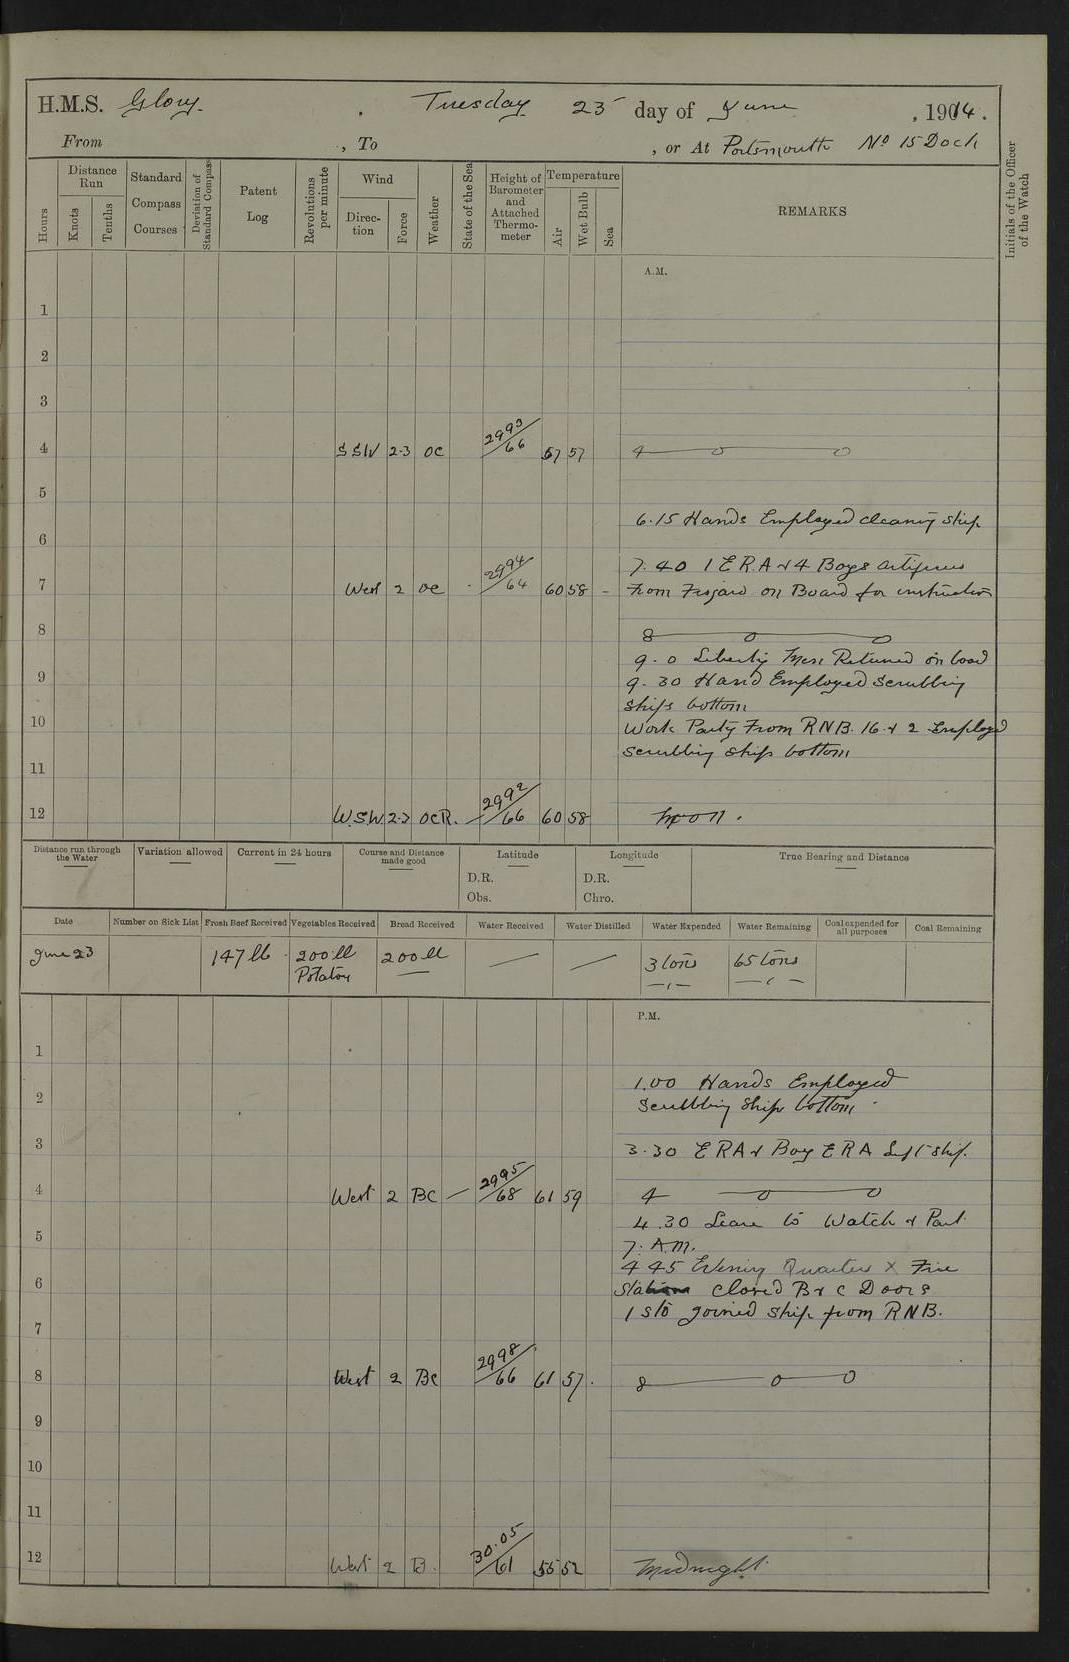 H.M.S. Glory. Tuesday 23 day of June, 1914.
From , To , or At Portsmouth No 15 Dock
Hours
Distance Run
Knots
Tenths
Standard Compass Courses
Deviation of Standard Compass
Patent Log
Revolutions per minute
Wind
Direction
Force
Weather
State of the Sea
Height of Barometer and Attached Thermometer
Temperature
Air
Wet Bulb
Sea
REMARKS
Initials of the Officer of the Watch
A.M.
1
2
3
4 SSW 2.3 OC 2993/66 57 57 4
5
6.15 Hands Employed cleaning ship
6
7.40 1 E.R.A & 4 Boys artificers
7 West 2 OC - 2994/64 60 58 - From Fisgard on Board for instruction
8 8
9.0 Liberty Men Returned on board
9 9.30 Hand Employed scrubbing
ships bottom
10 Work Party From RNB. 16 & 2 Employed
scrubbing ships bottom
11
12 W.S.W 2.3 OCR. 2992/66 60 58 Noon.
Distance run through the Water
Variation allowed
Current in 24 hours
Course and Distance made good
Latitude
D.R.
Obs.
Longitude
D.R.
Chro.
True Bearing and Distance
Date Number on Sick List Fresh Beef Received Vegetables Received Bread Received Water Received Water Distilled Water Expended Water Remaining Coal expended for all purposes Coal Remaining
June 23 147 lb 200 lb 200 lb — — 3 tons 65 tons
Potatoes
P.M.
1
1.00 Hands Employed
2 scrubbing ship bottom
3 3.30 ERA & Boy ERA Left ship.
4 West 2 BC — 2995/68 61 59 4
4.30 Leave to Watch & Part
5 7. A.M.
4 45 Evening Quarters x Fire
6 Station closed B & C Doors
1 sto joined ship from RNB.
7
8 West 2 BC 2998/66 61 57. 8
9
10
11
12 West 2 B. 30.05/61 55 52 Midnight